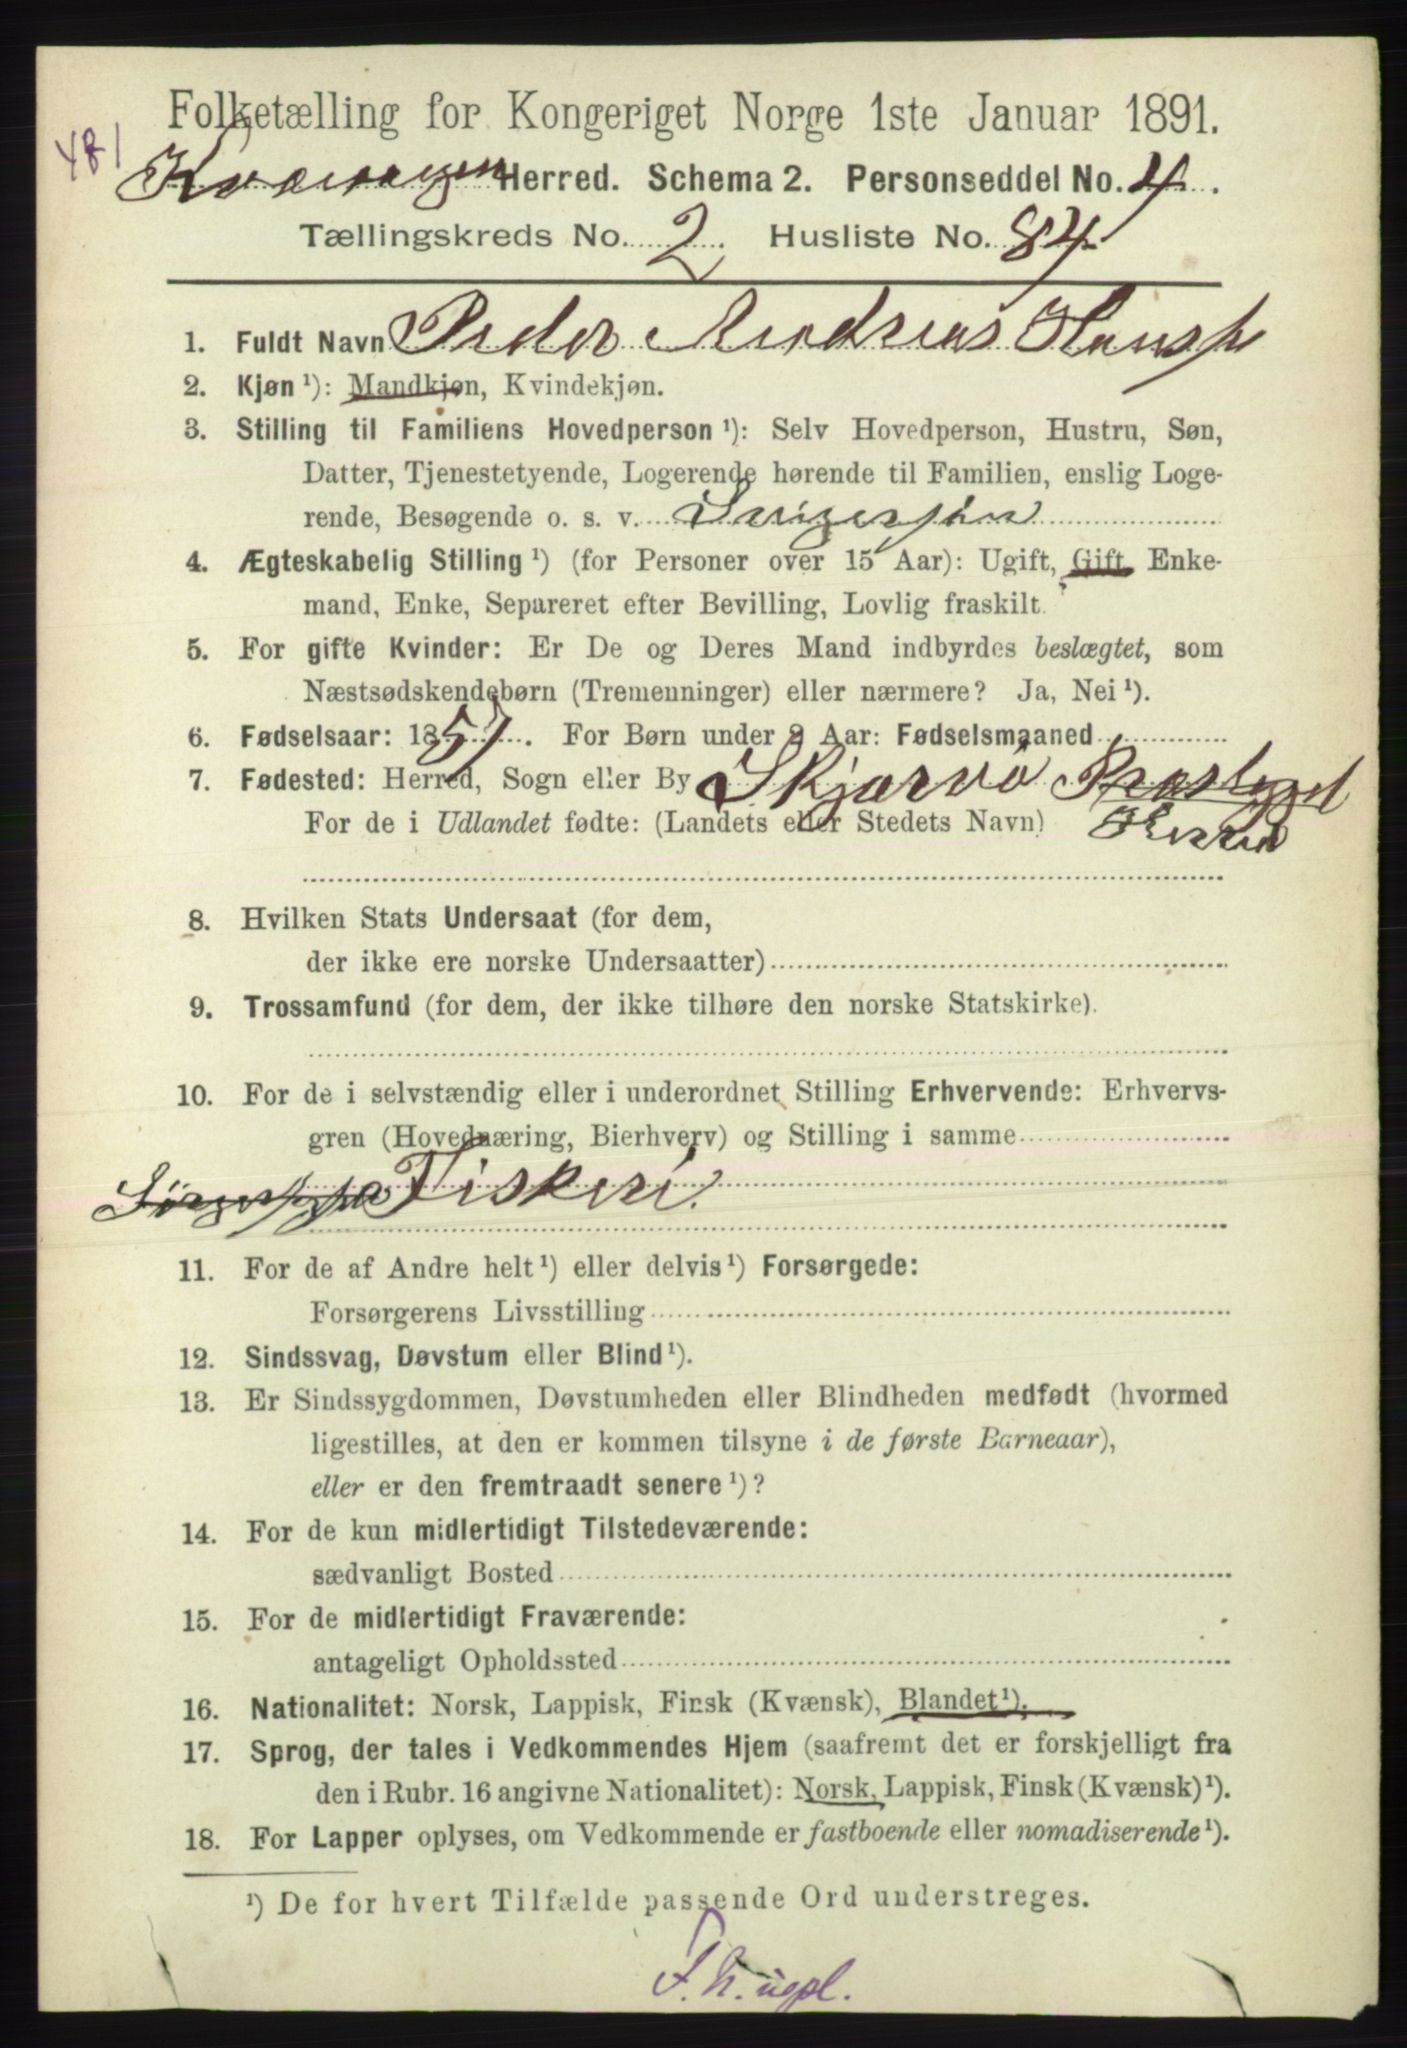 Folketælling for Kongeriget Norge 1ste Januar 1891.
481
Kvænangen Herred. Schema 2. Personseddel No. 4.
Tællingskreds No. 2. Husliste No. 84
1. Fuldt Navn Peder Andreas Hans
2. Kjøn¹): Mandkjøn, Kvindekjøn.
3. Stilling til Familiens Hovedperson¹): Selv Hovedperson, Hustru, Søn,
Datter, Tjenestetyende, Logerende hørende til Familien, enslig Loge-
rende, Besøgende o. s. v.
4. Ægteskabelig Stilling¹) (for Personer over 15 Aar): Ugift, Gift, Enke-
mand, Enke, Separeret efter Bevilling, Lovlig fraskilt.
5. For gifte Kvinder: Er De og Deres Mand indbyrdes beslægtet, som
Næstsødskendebørn (Tremenninger) eller nærmere? Ja, Nei¹).
6. Fødselsaar: 1857. For Børn under 2 Aar: Fødselsmaaned
7. Fødested: Herred, Sogn eller By Skjærvø Præstegjeld
For de i Udlandet fødte: (Landets eller Stedets Navn) Herred
8. Hvilken Stats Undersaat (for dem,
der ikke ere norske Undersaatter)
9. Trossamfund (for dem, der ikke tilhøre den norske Statskirke).
10. For de i selvstændig eller i underordnet Stilling Erhvervende: Erhvervs-
gren (Hovednæring, Bierhverv) og Stilling i samme
Fiskeri.
11. For de af Andre helt¹) eller delvis¹) Forsørgede:
Forsørgerens Livsstilling
12. Sindssvag, Døvstum eller Blind¹).
13. Er Sindssygdommen, Døvstumheden eller Blindheden medfødt (hvormed
ligestilles, at den er kommen tilsyne i de første Barneaar),
eller er den fremtraadt senere¹)?
14. For de kun midlertidigt Tilstedeværende:
sædvanligt Bosted
15. For de midlertidigt Fraværende:
antageligt Opholdssted
16. Nationalitet: Norsk, Lappisk, Finsk (Kvænsk), Blandet¹).
17. Sprog, der tales i Vedkommendes Hjem (saafremt det er forskjelligt fra
den i Rubr. 16 angivne Nationalitet): Norsk, Lappisk, Finsk (Kvænsk)¹).
18. For Lapper oplyses, om Vedkommende er fastboende eller nomadiserende¹).
¹) De for hvert Tilfælde passende Ord understreges.